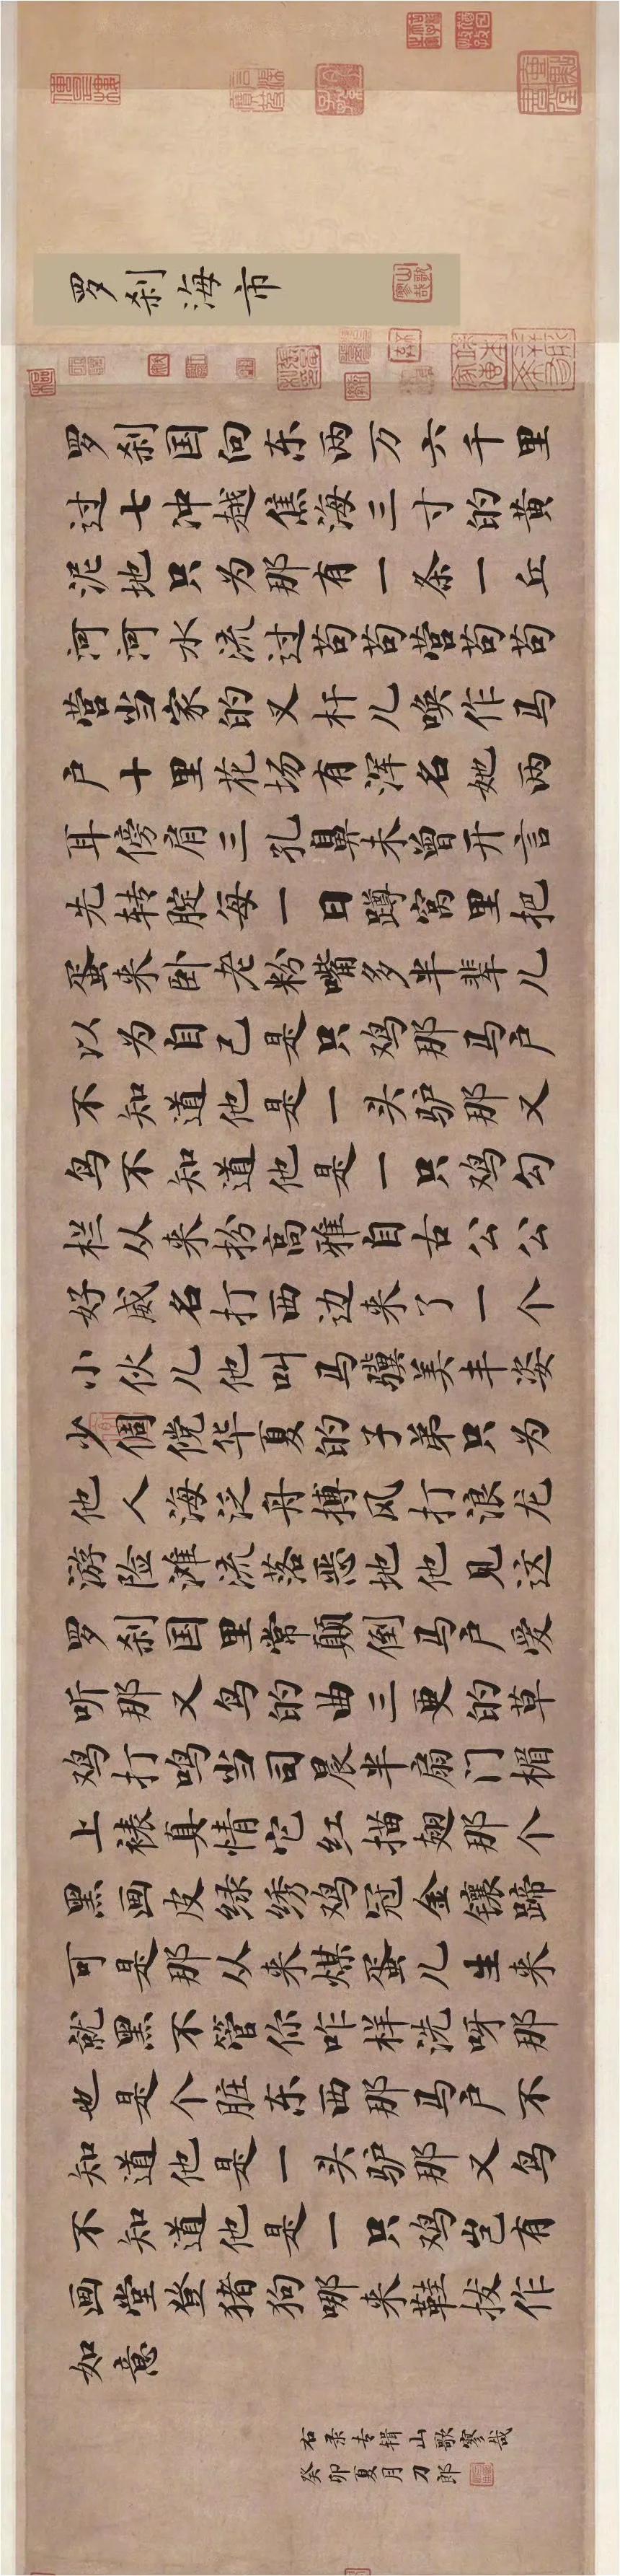 罗刹海市
罗刹国向东两万六千里
过七冲越焦海三寸的黄
泥地只为那有一条一丘
河河水流过苟苟营苟苟
营当家的叉杆儿唤作马
户十里花场有浑名她两
耳傍肩三孔鼻未曾开言
先转腚每一日蹲窝里把
蛋来卧老粉嘴多半辈儿
以为自己是只鸡那马户
不知道他是一头驴那又
鸟不知道他是一只鸡勾
栏从来扮高雅自古公公
好威名打西边来了一个
小伙儿他叫马骥美丰姿
少倜傥华夏的子弟只为
他人海泛舟搏风打浪龙
游险滩流落恶地他见这
罗刹国里常颠倒马户爱
听那又鸟的曲三更的草
鸡打鸣当司晨半扇门楣
上裱真情它红描翅那个
黑画皮绿绣鸡冠金镶蹄
可是那从来煤蛋儿生来
就黑不管你咋样洗呀那
也是个脏东西那马户不
知道他是一头驴那又鸟
不知道他是一只鸡岂有
画堂登猪狗哪来鞋拔作
如意
右录专辑山歌寥哉
癸卯夏月刀郎